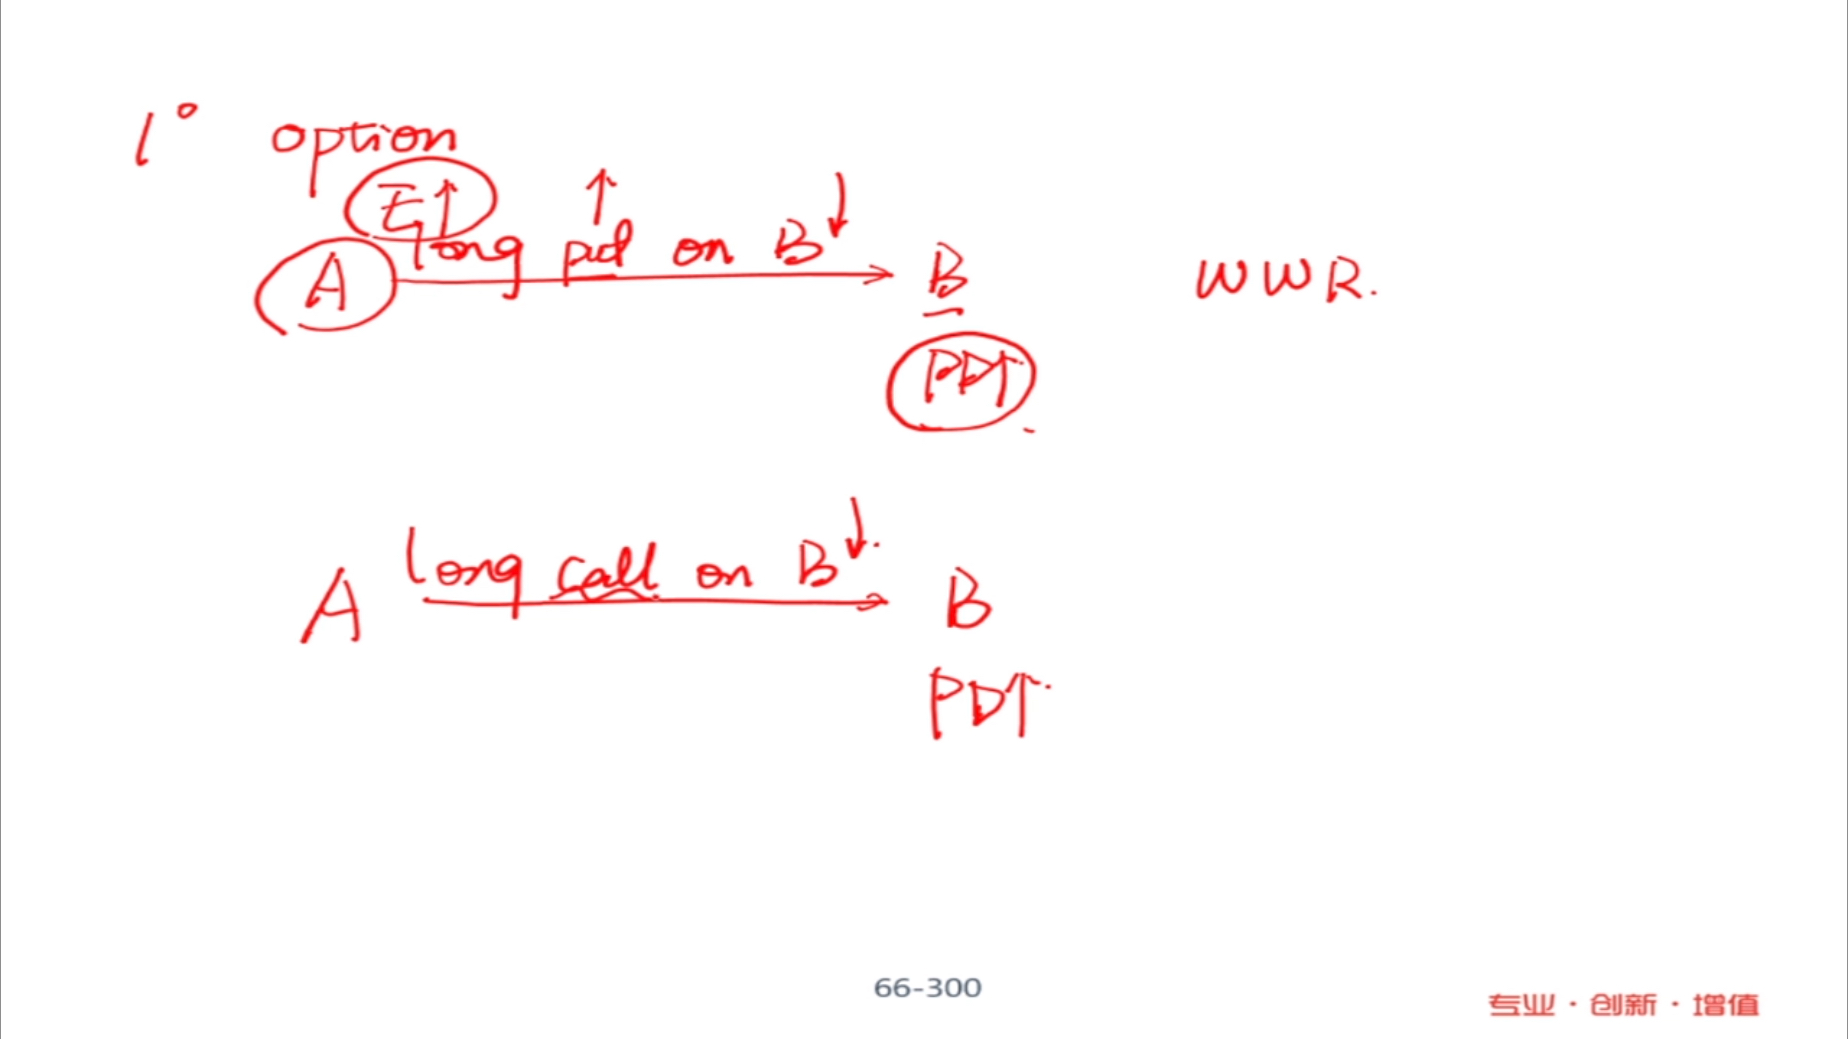 1° option
E↑ ↑ ↓
A long put on B B WWR.
PD↑
↓
A long call on B B
PD↑
66-300
专业·创新·增值